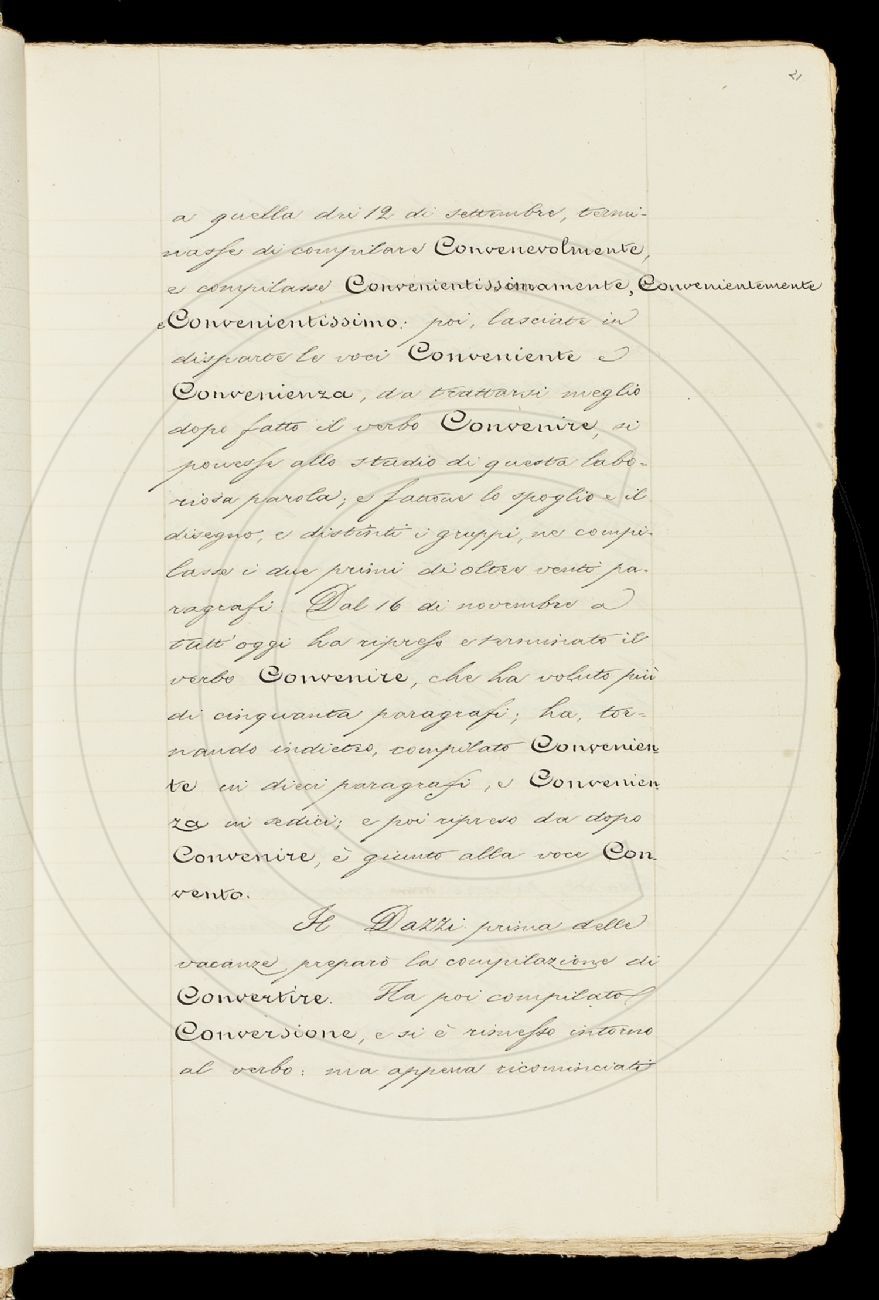 21
a quella dei 12 di settembre, termi-
nasse di compilare Convenevolmente,
e compilasse Convenientissimamente, Convenientemente
e Convenientissimo: poi, lasciate in
disparte le voci Conveniente e
Convenienza, da trattarsi meglio
dopo fatto il verbo Convenire, si
ponesse allo studio di questa labo-
riosa parola; e fattone lo spoglio e il
disegno, e distinti i gruppi, ne compi-
lasse i due primi di oltre venti pa-
ragrafi. Dal 16 di novembre a
tutt'oggi ha ripreso e terminato il
verbo Convenire, che ha voluto più
di cinquanta paragrafi; ha, tor-
nando indietro, compilato Convenien-
te in dieci paragrafi, e Convenien-
za in sedici; e poi ripreso da dopo
Convenire, è giunto alla voce Con-
vento.
Il Dazzi prima delle
vacanze preparò la compilazione di
Convertire. Ha poi compilato
Conversione, e si è rimesso intorno
al verbo: ma appena ricominciati